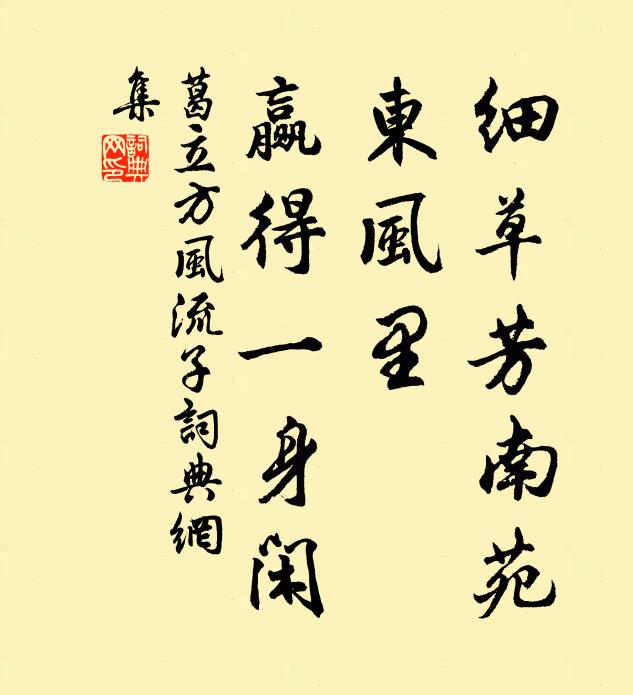 細草芳南苑
東風里
贏得一身閑
葛立方風流子詞典網
集
詞典網印